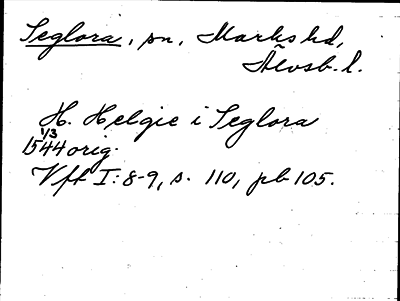 Seglora, sn, Marks hd,
Älvsb. l.
H. Helgie i Seglora
1/3
1544 orig.
Vff I:8-9, s. 110, pb 105.